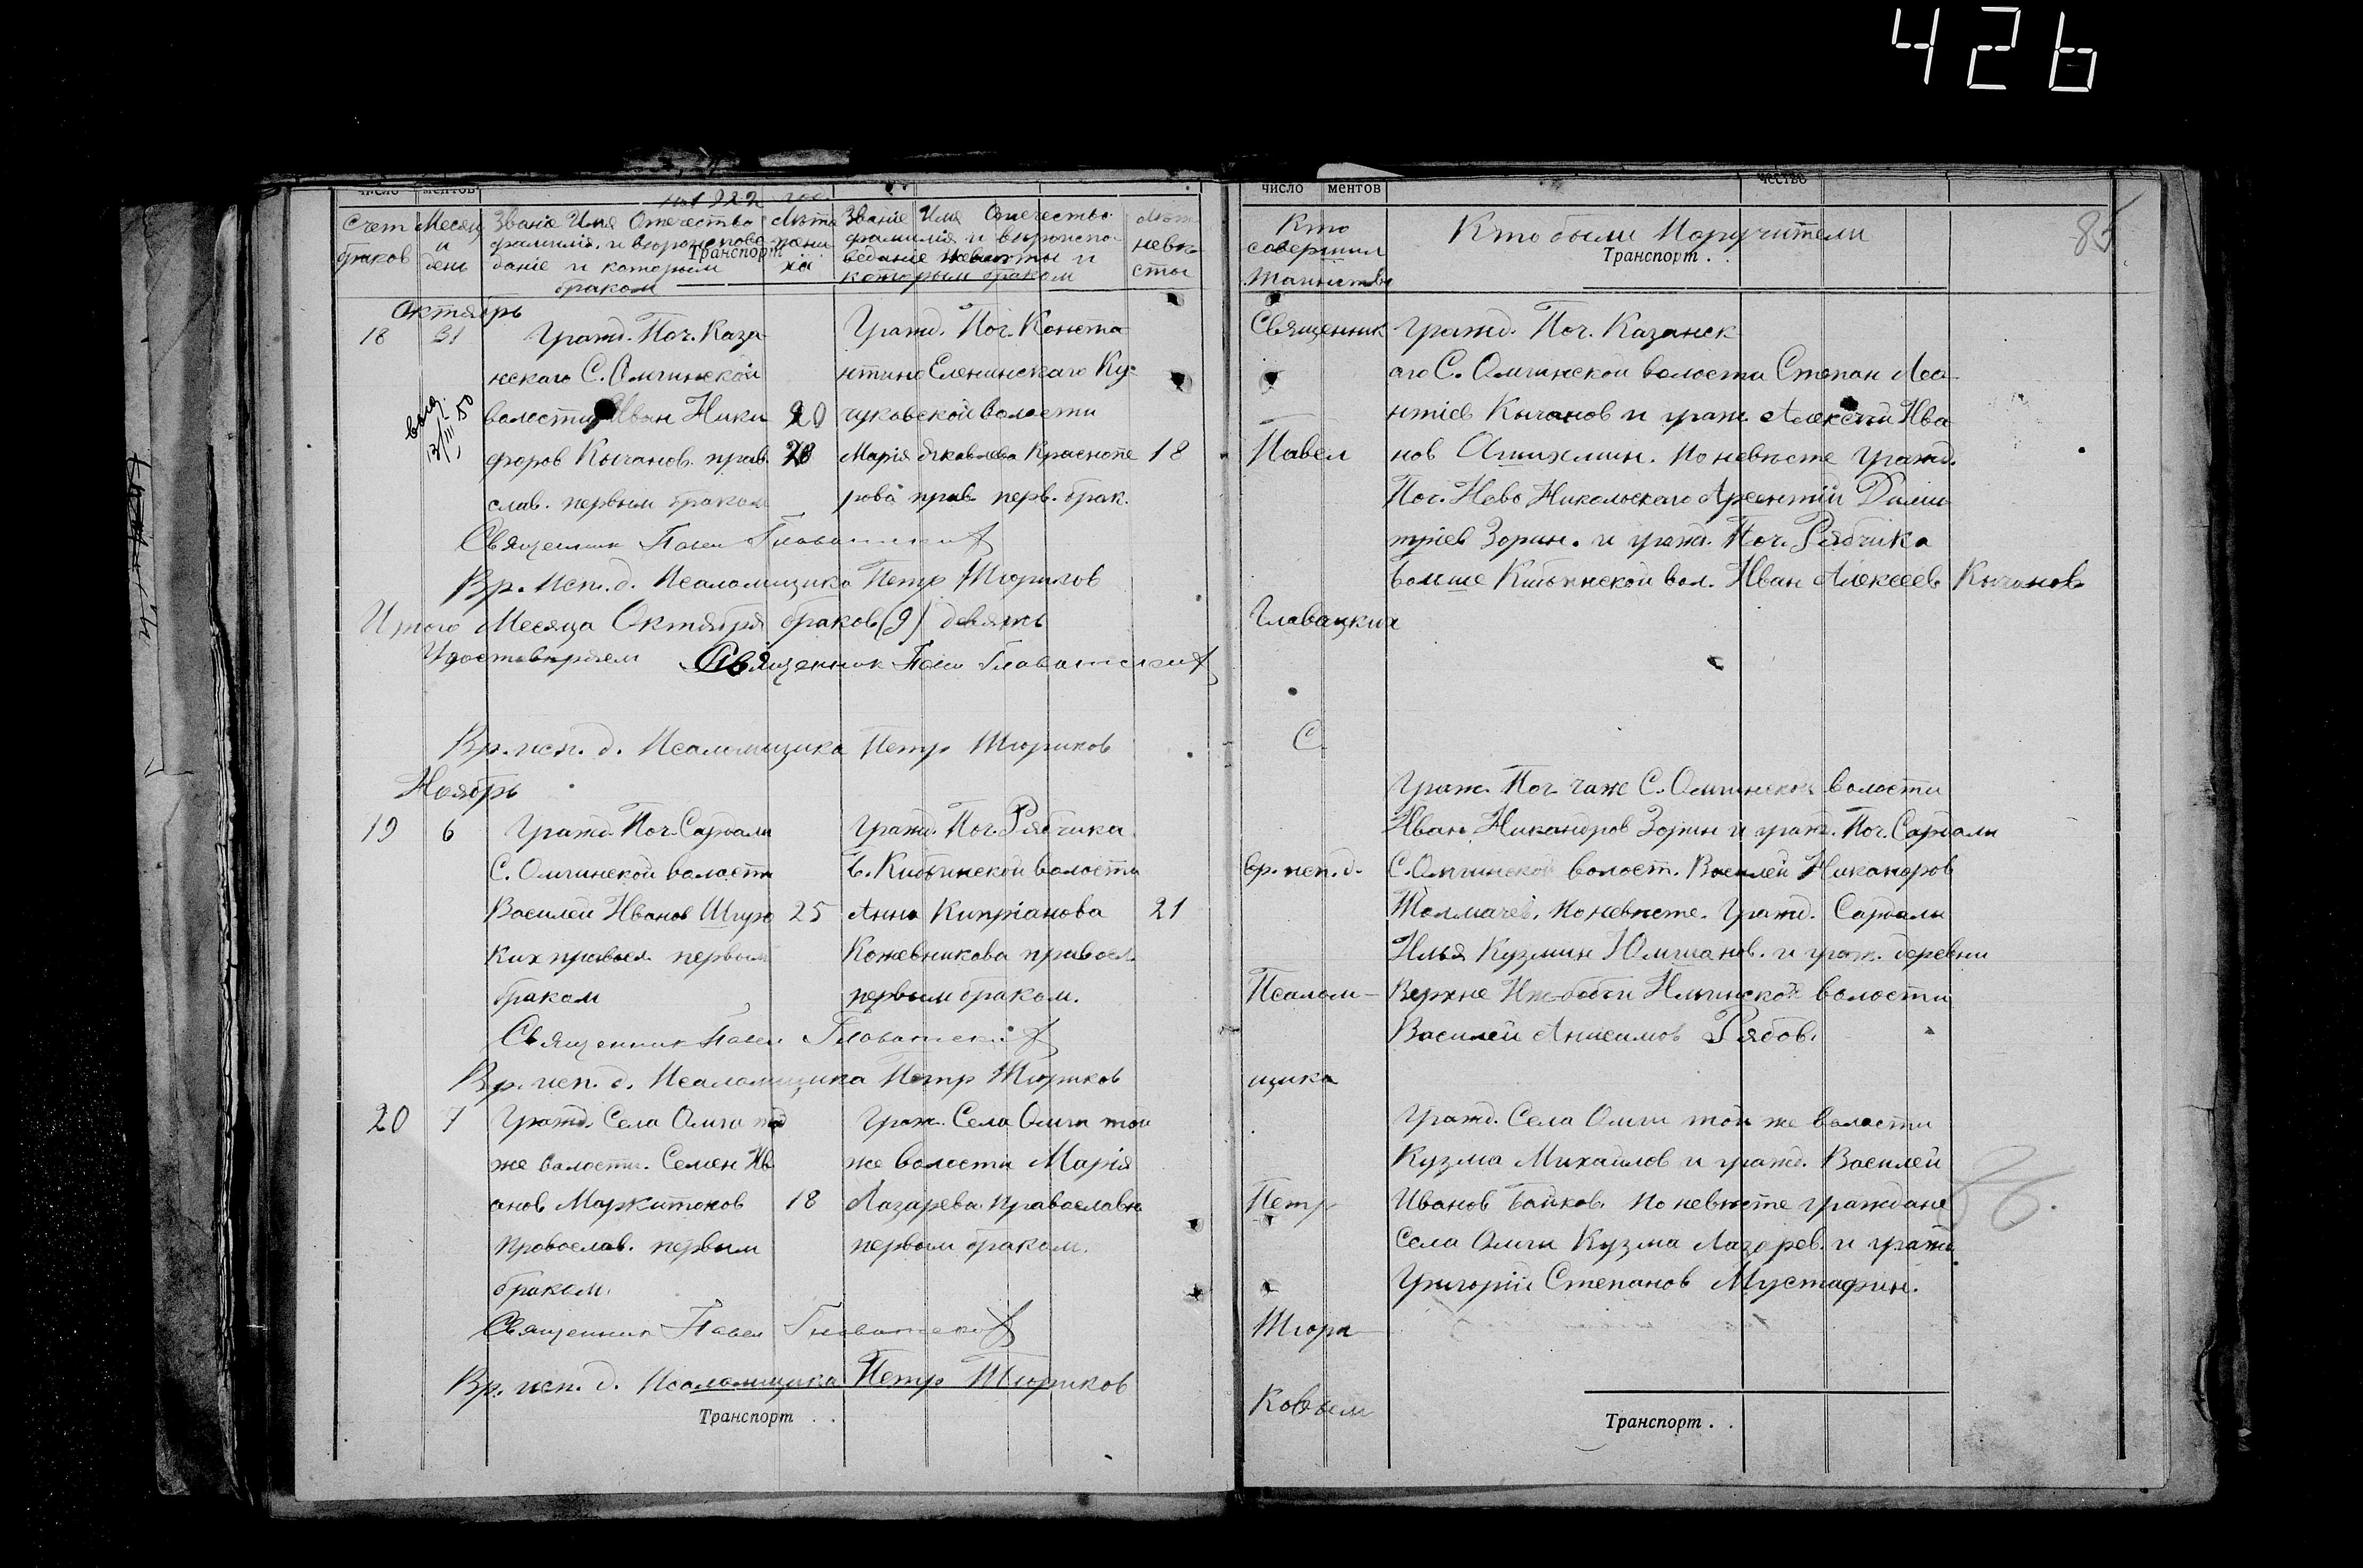 426
число ментов
на 1922 год
Счет браков
Месяц и день
Званіе Имя Отечество
фамилія, и вероиспове
даніе и которым
браком
Транспорт
Лѣта жени ха
Званіе Имя Отечество
фамилія и вероиспо
ведание невѣсты и
которым браком
Лѣт невѣ сты
Октябрь
18 31 Гражд. Поч. Каза
нскаго С. Омгинской
волости Иван Ники 20
форов Кычанов. прав.
слав. первым браком
Гражд. Поч. Конста
нтино Еленинскаго Ку
чуковской волости
Марія Яковлева Краснопе 18
рова прав. перв. брак.
Священник Павел Главатский
Вр. исп. д. Псаломщика Петр Тюриков
Итого Месяца Октября браков (9) девять
Удостоверяем Священник Павел Главатский
Вр. исп. д. Псаломщика Петр Тюриков
Ноябрь
19 6 Гражд. Поч. Сардали
С. Омгинской волости
Василей Иванов Широ 25
ких правосл. первым
браком
Гражд. Поч. Рябчика
Б. Кибьинской волости
Анна Кипріанова 21
Кожевникова правосл.
первым браком.
Священник Павел Главатский
Вр. исп. д. Псаломщика Петр Тюриков
20 7 Гражд. Села Омги той
же волости. Семен Ив
анов Маркитонов 18
Православ. первым
браком.
Граж. Села Омги той
же волости Марія
Лазарева православн
первым браком.
Священник Павел Главатский
Вр. исп. д. Псаломщика Петр Тюриков
Транспорт . .
число ментов
чество
85
Кто совершил Таинство
Кто были Поручители
Транспорт . .
Священник
Павел
Главацких
С.
Вр. исп. д.
Псалом-
щика
Петр
Тюри-
ковым
Гражд. Поч. Казанск
аго С. Омгинской волости Степан Лео
нтіев Кычанов и граж. Алексей Ива
нов Ашихмин. По невѣсте Гражд.
Поч. Ново Никольскаго Арсентій Дими
тріев Зорин. и гражд. Поч. Рябчика
Больше Кибьинской вол. Иван Алексеев Кычанов
Граж. Поч. С. Омгинской волости
Иван Никандров Зорин и граж. Поч. Сардали
С. Омгинской волост. Василей Никандров
Толмачев. По невѣсте. Гражд. Сардали
Илья Кузмин Юмшанов. и граж. деревни
Верхне волости
Василей Анисимов Рябов.
Гражд. Села Омги той же волости
Кузма Михайлов и гражд. Василей
Иванов Байков. По невѣсте граждане
Села Омги Кузма Лазарев. и гражд
Григорій Степанов Мустафин.
Транспорт . .